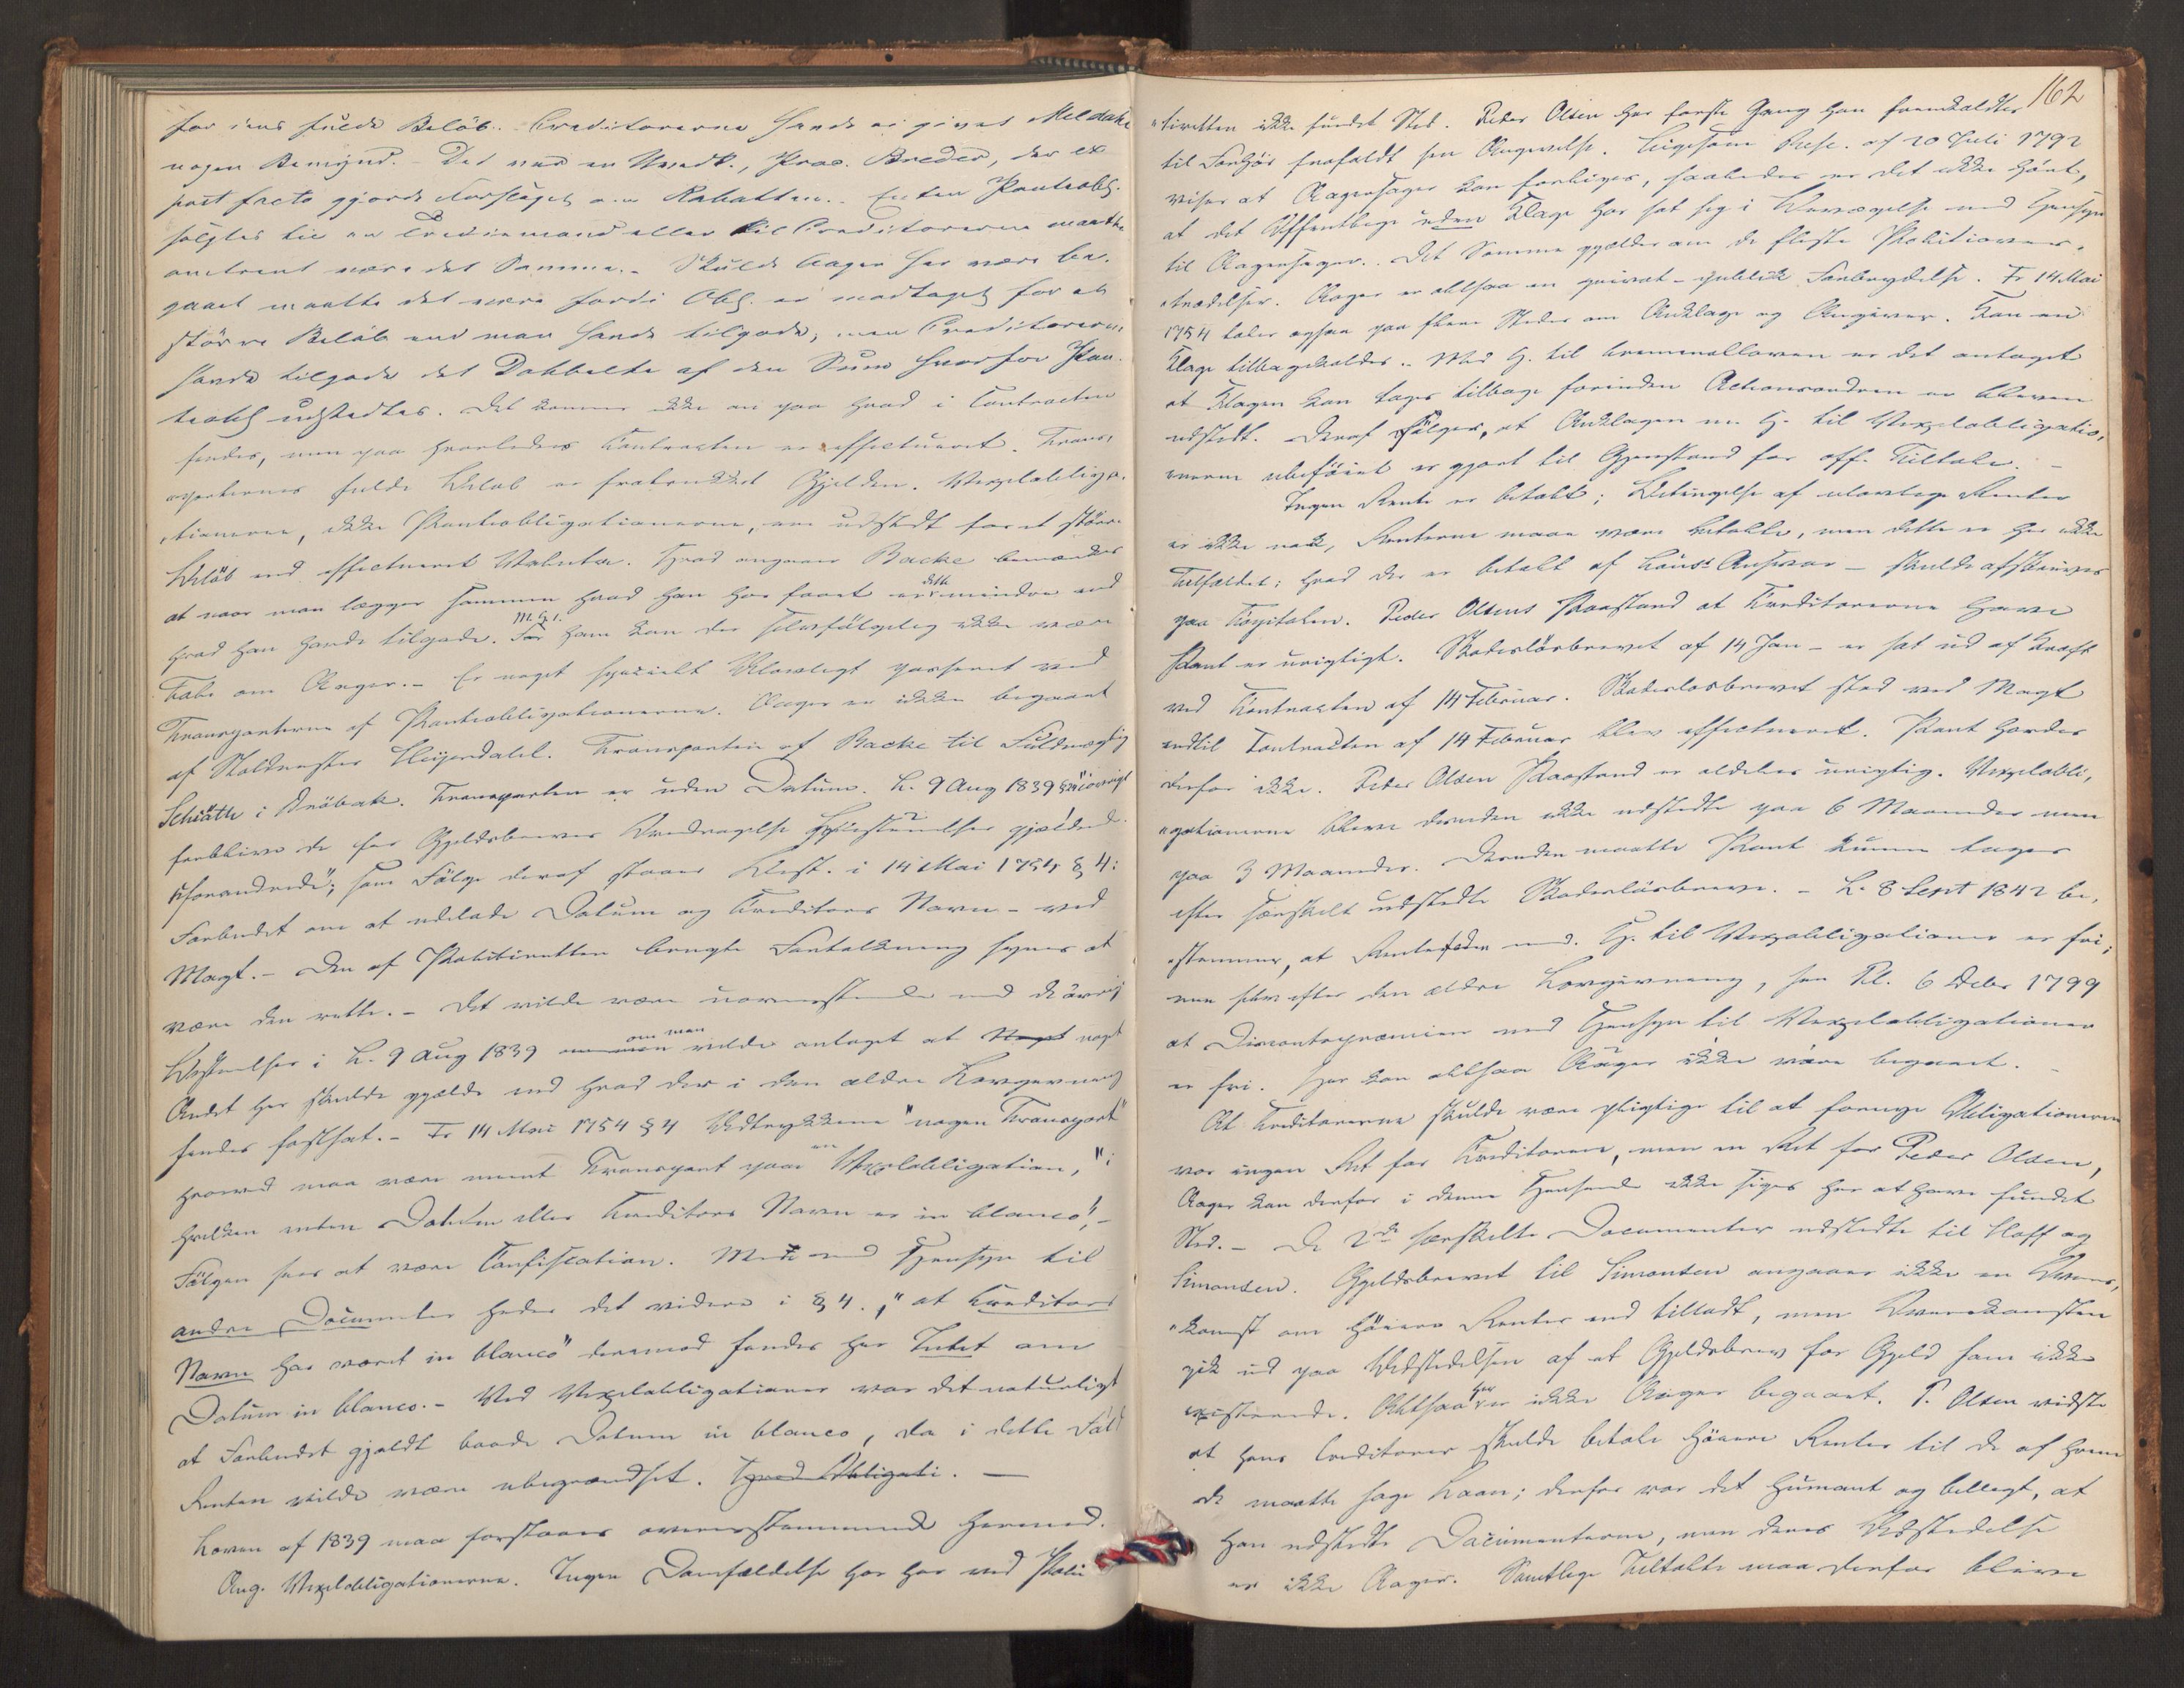 for dens fulde Beløb. Creditorerne havde ei givet Meldahl
nogen Bemynd. - Det var en Mand, Proc. Breder, der ex
post facto gjorde Forslaget om Rabatten. Enten Pantoblg.
solgtes til en Trediemand eller til Creditorerne maatte
omtrent være det Samme. - Skulde Aager her være be-
gaaet maatte det være fordi Obl. er modtaget for et
større Beløb end man havde tilgode, men Creditorerne
havde tilgode det Dobbelte af den Sum hvorfor Pan-
teobl udstedtes. Det kommer ikke an paa hvad i Contracten
findes, men paa hvorledes Contracten er effectueret. Trans-
porternes fulde Beløb er fratrukket Gjælden. Vexelobliga-
tionerne, ikke Panteobligationerne, ere udstedt for et større
Beløb end effectueret Valuta. Hvad angaaer Backe bemærkes
at naar man lægger sammen hvad han har faaet er dette mindre end
hvad han havde tilgode. M. H. t. ham kan der selvfølgelig ikke være
Tale om Aager. - Er noget specielt Ulovligt passeret ved
Transporterne af Panteobligationerne. Aager er ikke begaaet
af Skoldmester Heyerdahl. Transporten af Backe til Fuldmægtig
Schiøth i Drøbak. Transporten er uden Datum. L. 9 Aug 1839 § "iøvrigt
forblive de for Gjeldsbreves Overdragelse Bestemmelser gjældende
uforandrede"; som Følge deraf staaer Best. i 14 Mai 1754 § 4:
Forbudet om at udelade Datum og Creditors Navn - ved
Magt. - Den af Politiretten brugte Fortolkning synes at
være den rette. - Det vilde være uovereensstemmende med de øvrige
Bestemelser i L. 9 Aug 1839 om man vilde antaget at noget
Andet her skulde gjælde end hvad der i den ældre Lovgivning
findes fastsat. - Fr 14 Mai 1754 § 4 Udtrykkene "nogen Transport"
hvorved maa være meent Transport paa en Vexelobligation, "i
hvilken enten Datum eller Creditors Navn er in blanco", -
Følgen sees at være Confiscation. Men med Hensyn til
andre Documenter heder det videre i § 4. "at Creditors
Navn har været in blanco" derimod findes her Intet om
Datum in blanco. - Ved Vexelobligationer var det naturligt
at Forbudet gjaldt baade Datum in blanco, da i dette Fald
Renten vilde være ubegrændset. Hvad Obligati. —
Loven af 1839 maa forstaaes overensstemmende hermed.
Ang. Vexelobligationerne. Ingen Domfældelse har her ved Poli-
162
"tiretten ikke fundet Sted. Peder Olsen har første Gang han fremkaldtes
til Forhør frafaldt sin Angivelse. Ligesom Resc. af 20 Juli 1792
viser at Aagersager kan forliges, saaledes er det ikke hørt,
at det Offentlige uden Klage har sat sig i Bevægelse med Hensyn
til Aagersager. Det Samme gjælder om de fleste Politiover-
"trædelser. Aager er altsaa en privat-publick Forbrydelse. Fr 14 Mai
1754 taler ogsaa paa flere Steder om Anklage og Angiver. Kan en
Klage tilbagekaldes. Med H. til Criminalloven er det antaget
at Klagen kan tages tilbage forinden Actionsordren er bleven
udstedt. Deraf følger, at Anklagen m. H. til Vexelobligatio-
nerne ubeføiet er gjort til Gjenstand for off. Tiltale. -
Ingen Rente er betalt; Betingelse af ulovlige Renter
er ikke nok, Renterne maae være betalte, men dette er her ikke
Tilfældet; hvad der er betalt af Ansvar - skulde afskrives
paa Capitalen. Peder Olsens Paastand at Creditorerne have
Pant er urigtigt. Skadesløsbrevet af 14 Jan - er sat ud af Kraft
ved Contracten af 14 Februar. Skadesløsbrevet stod ved Magt
indtil Contracten af 14 Februar blev effectueret. Pant havdes
derfor ikke. Peder Olsen Paastand er aldeles urigtig. Vexelobli-
"gationerne bleve desuden ikke udstedte paa 6 Maaneder men
paa 3 Maaneder. Desuden maatte Pant kunne tages
efter særskilt udstedte Skadesløsbreve. - L. 8 Sept 1842 be-
stemmer, at Rentefoden m. H. til Vexelobligationer er fri;
men selv efter den ældre Lovgivning, see Pl. 6 Debr 1799
at Discontopræmien med Hensyn til Vexelobligationer
er fri. Her kan altsaa Aager ikke være begaaet. -
At Creditorerne skulde være pligtige til at fornye Obligationerne
var ingen Ret for Creditorerne, men en Ret for Peder Olsen,
Aager kan derfor i denne Henseende ikke siges her at have fundet
Sted. - De 2de særskilte Documenter udstedte til Hoff og
Simonsen. Gjeldsbrevet til Simonsen angaaer ikke en Overens-
"komst om høiere Renter end tilladt, men Overenskomsten
gik ud paa Udstedelsen af et Gjeldsbrev for Gjeld som ikke
existerede. Altsaa her er ikke Aager begaaet. P. Olsen vidste
at hans Creditorer skulde betale høiere Renter til de af hvem
de maatte søge Laan; derfor var det humant og billigt, at
han udstedte Documenterne, men deres Udstedelse
er ikke Aager. Samtlige Tiltalte maa derfor blive